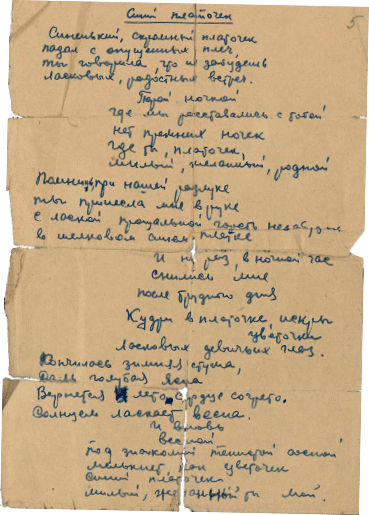 Синий платочек
5
Синенький, скромный платочек
падал с опущенных плеч.
ты говорила что не забудешь
ласковых, радостных встреч.
Порой ночной
где мы расставались с тобой
нет прежних ночек
где ты, платочек,
милый, желанный, родной
Помнишь при нашей разлуке
ты принесла мне в руке
с лаской прощальной горсть незабудок
в шелковом синем платке
И не раз в ночной час
снились мне
после трудного дня
Кудри в платочке, искры
цветочки
Ласковых девичьих глаз.
Кончилась зимняя стужа,
Даль голубая ясна
Вернется лето сердце согрето.
Солнцем ласкает весна.
И вновь
весной
под знакомой тенистой сосной
мелькнет, как цветочек
Синий платочек
милый, желанный ты мой.